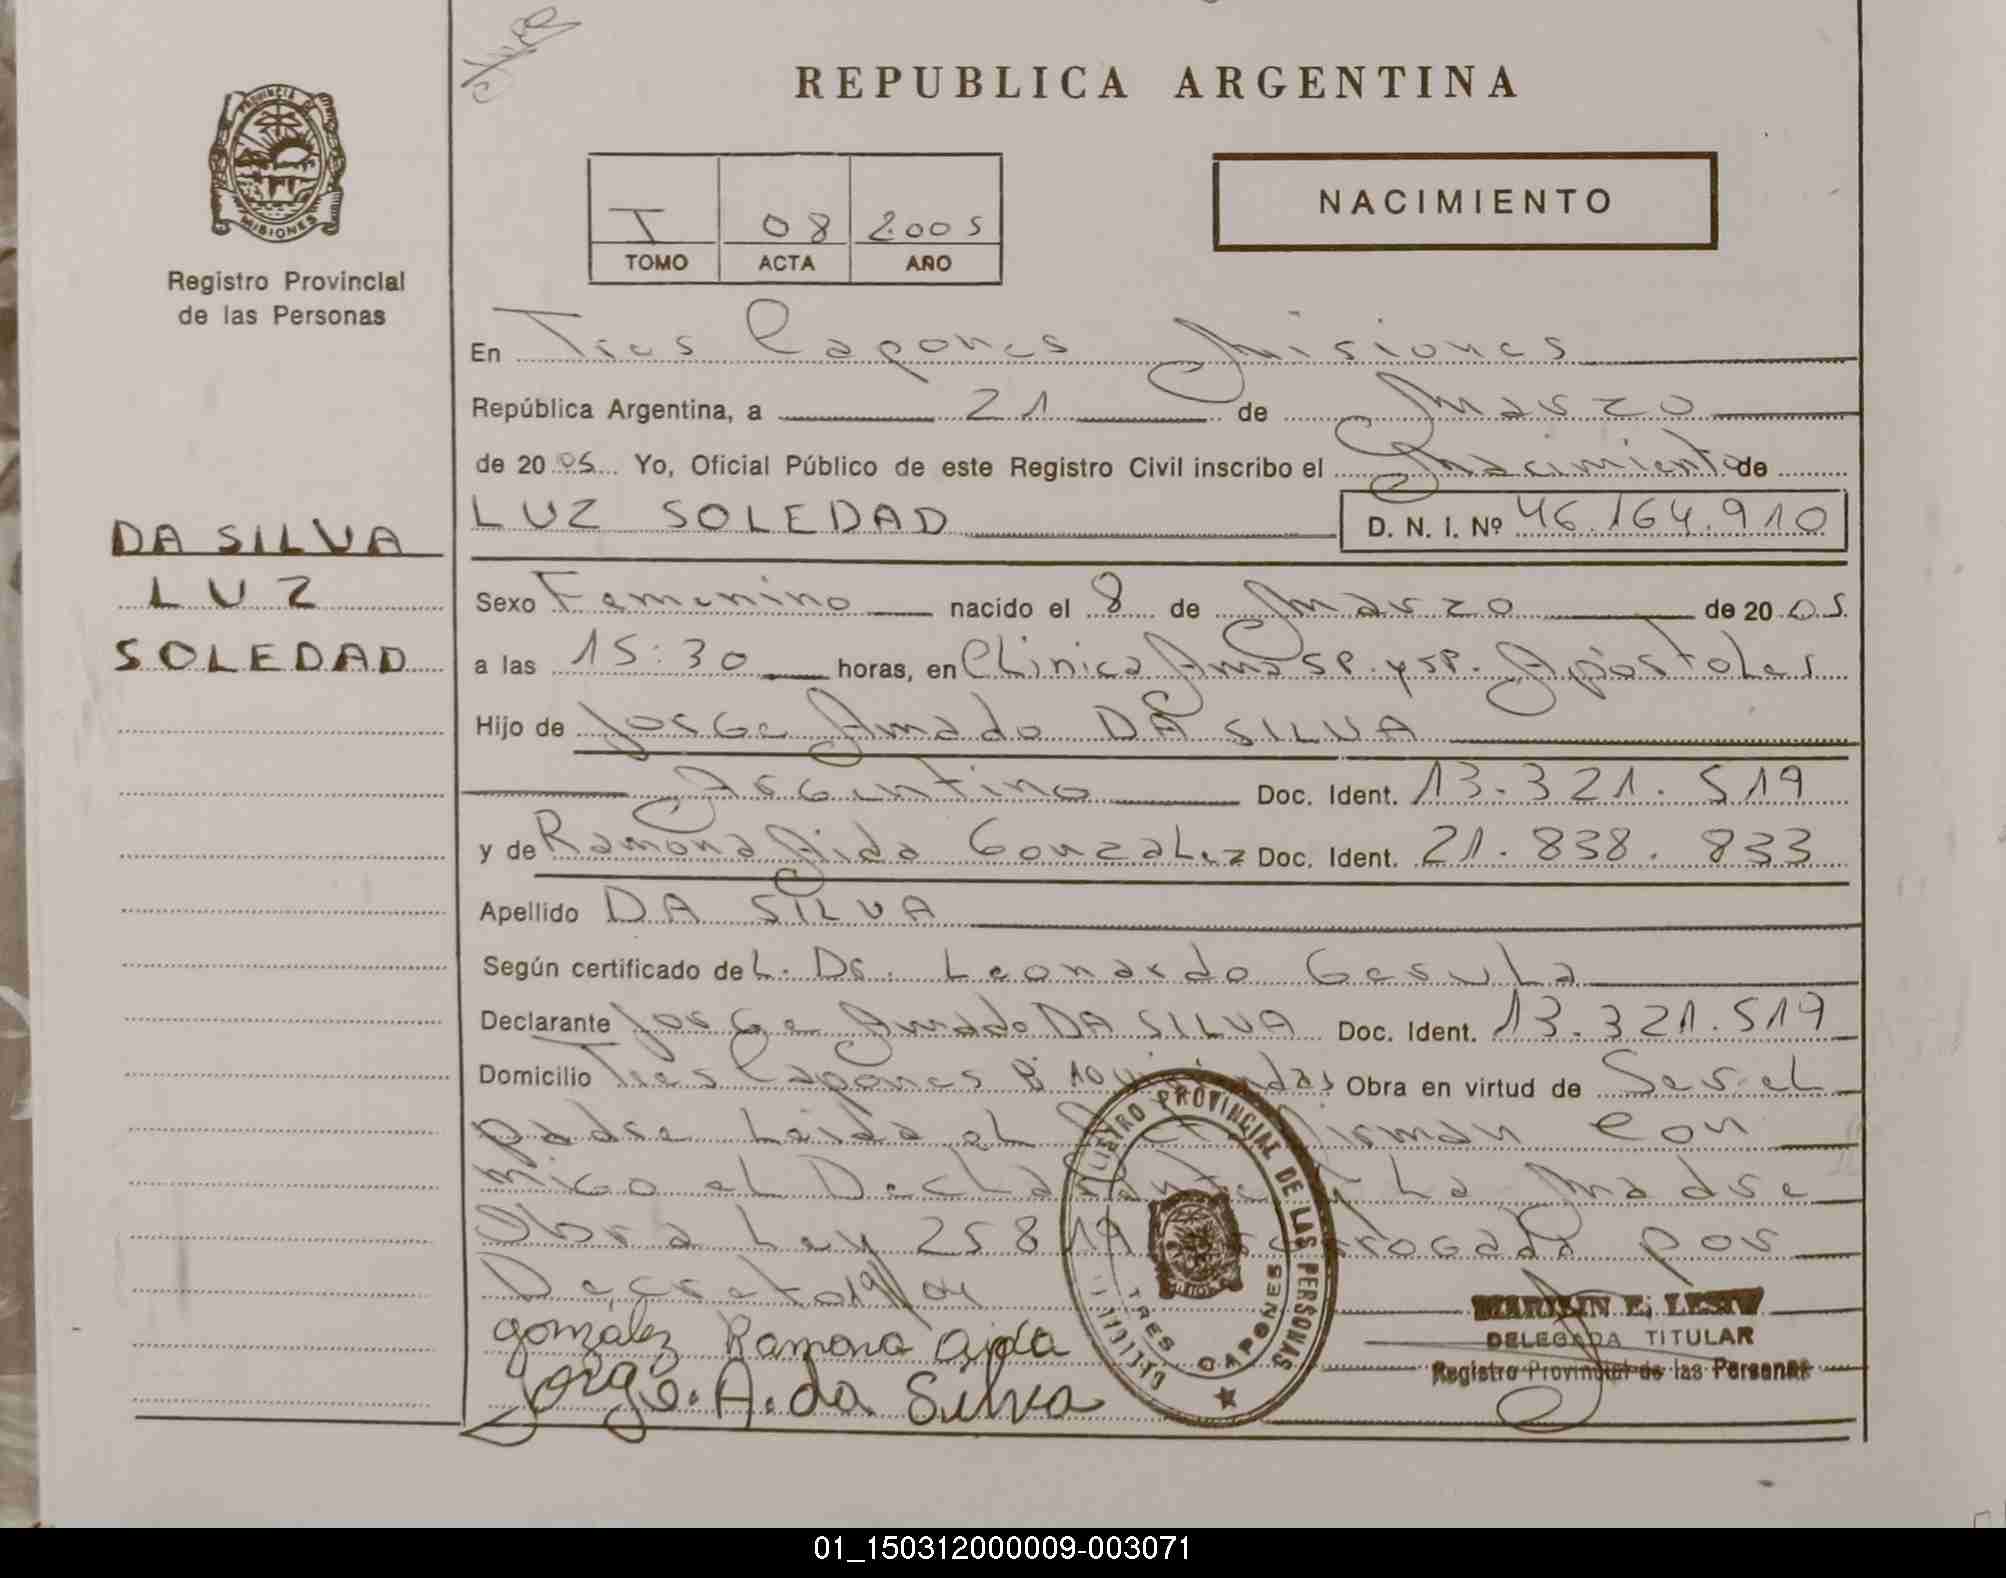 REPUBLICA ARGENTINA
PROVINCIA DE
MISIONES
Registro Provincial
de las Personas
I 08 2005
TOMO ACTA AÑO
NACIMIENTO
En Tres Capones Misiones
República Argentina, a 21 de Marzo
de 20 05 Yo, Oficial Público de este Registro Civil inscribo el nacimiento de
LUZ SOLEDAD D. N. I. Nº 46.164.910
DA SILVA
LUZ
SOLEDAD
Sexo Femenino nacido el 8 de Marzo de 20 05
a las 15:30 horas, en Clinica Ama SP. y SP. Apóstoles
Hijo de Jorge Amado DA SILVA
Argentino Doc. Ident. 13.321.519
y de Ramona Aida Gonzalez Doc. Ident. 21.838.833
Apellido DA SILVA
Según certificado del Dr. Leonardo Gesula
Declarante Jorge Amado DA SILVA Doc. Ident. 13.321.519
Domicilio Tres Capones Bº 10 viviendas Obra en virtud de Ser el
padre Leida el Acta Firman con
migo el Declarante y La Madre
Obra Ley 25819 prorrogada por
Decreto 19/04
gonzalez Ramona aida
Jorge. A. da Silva
REGISTRO PROVINCIAL DE LAS PERSONAS
TRES CAPONES
DELEGADA TITULAR
Registro Provincial de las Personas
01_150312000009-003071